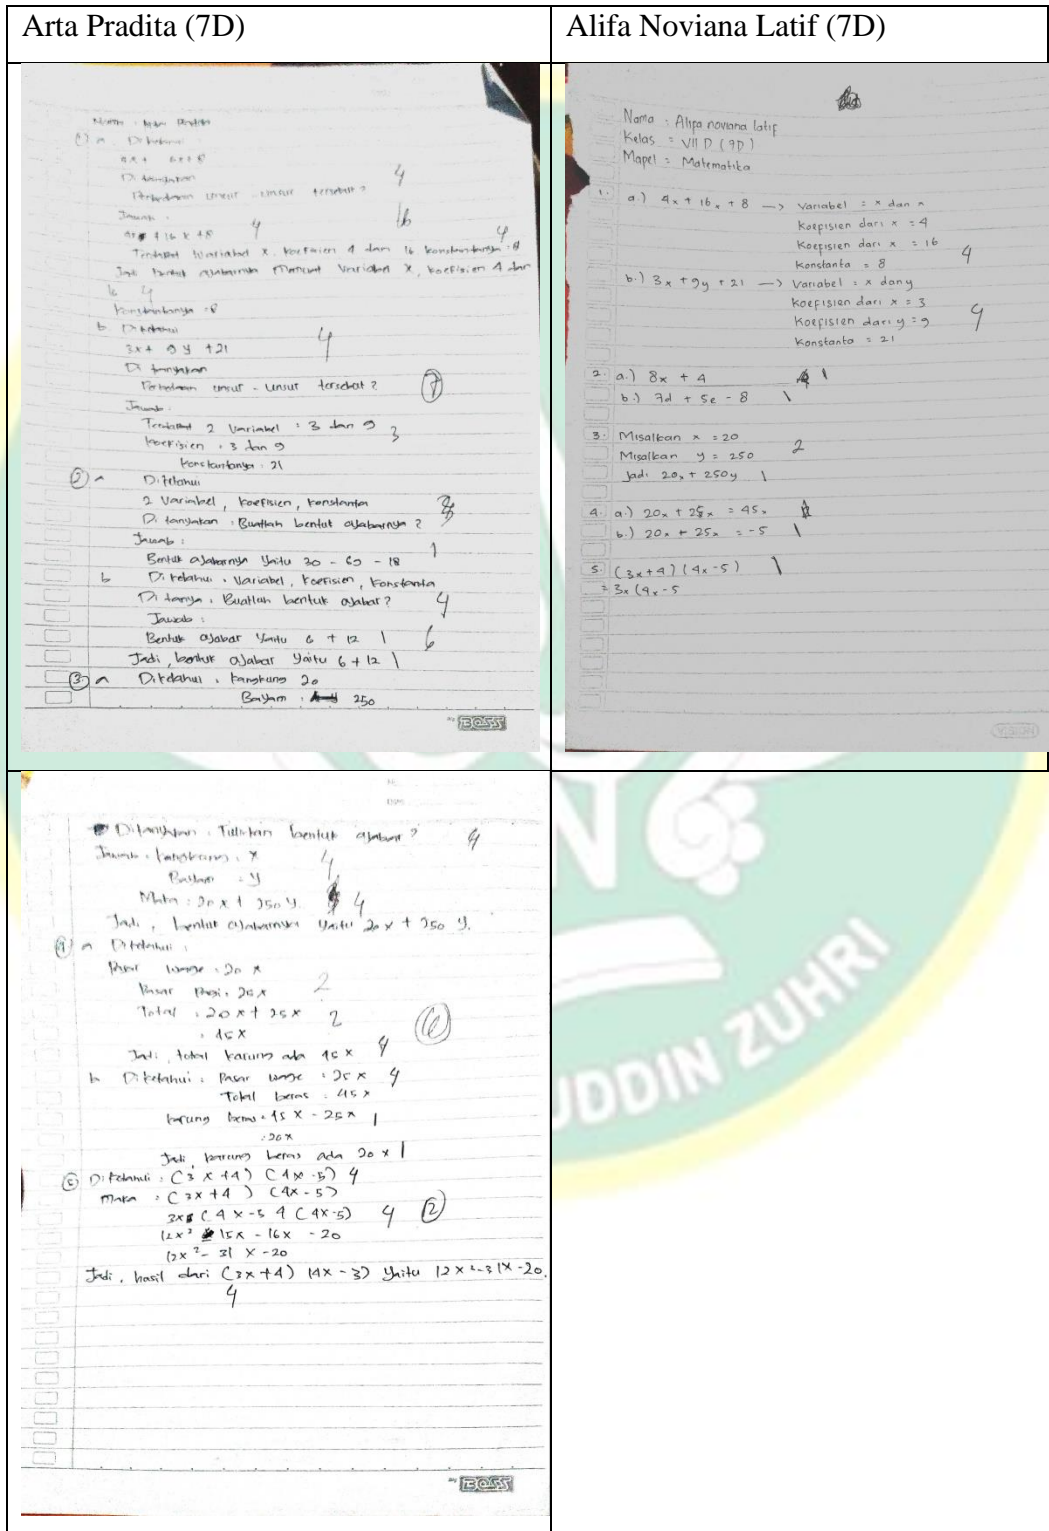 Arta Pradita (7D)
Alifa Noviana Latif (7D)
Nama :
1) a. Diketahui
Ditanyakan
Perbedaan unsur - unsur tersebut?
4
Jawab :
4 16
4x + 16 x +8 4
Terdapat Variabel x, koefisien 4 dan 16 konstantanya = 8
Jadi bentuk aljabarnya Memuat Variabel x, koefisien 4 dan
16 4
Konstantanya = 8
b Diketahui
3x + 9 y + 21 4
Di tanyakan
Perbedaan unsur - unsur tersebut? 7
Jawab :
Terdapat 2 Variabel : 3 dan 9 3
koefisien : 3 dan 9
Konstantanya : 21
2 a Diketahui
2 Variabel, koefisien, konstanta
Di tanyakan : Buatlah bentuk aljabarnya ?
Jawab : 1
Bentuk aljabarnya yaitu 30 - 60 - 18
b Diketahui : Variabel, koefisien, konstanta
Di tanya : Buatlah bentuk aljabar? 4
Jawab :
Bentuk aljabar yaitu 6 + 12 1 6
Jadi, bentuk aljabar yaitu 6 + 12 1
3. a Diketahui : kangkung 20
Bayam : 250
BOSS
Nama : Alifa noviana latif
Kelas = VII D (7D)
Mapel = Matematika
1. a.) 4x + 16x + 8 → Variabel = x dan x
Koefisien dari x = 4
Koefisien dari x = 16
Konstanta = 8 4
b.) 3x + 9y + 21 → Variabel = x dan y
Koefisien dari x = 3
Koefisien dari y = 9 4
Konstanta = 21
2. a.) 8x + 4 1
b.) 7d + 5e - 8 1
3. Misalkan x = 20
Misalkan y = 250 2
Jadi 20x + 250y 1
4. a.) 20x + 25x = 45x
b.) 20x + 25x = -5 1
5. (3x+4)(4x-5) 1
= 3x(4x-5
VISION
Ditanyakan : Tuliskan bentuk aljabar? 4
Jawab : Kangkung : x 4
Bayam : y
Maka : 20 x + 250 y. 4
Jadi, bentuk aljabarnya yaitu 20 x + 250 y.
4 a Diketahui :
Pasar wage : 20 x
Pasar Pagi : 25 x 2
Total : 20x + 25x 2 6
: 45x
Jadi, total karung ada 45 x 4
b Diketahui : Pasar wage : 25 x 4
Total beras : 45 x
karung beras : 45 x - 25x 1
: 20x
Jadi, karung beras ada 20 x 1
5 Diketahui : (3 x +4) (4x -5) 4
Maka : (3x +4 ) (4x - 5)
3x (4x -5 4 (4x-5) 4 2
12x² 15x - 16x - 20
12x² - 31 x -20
Jadi, hasil dari (3x +4) (4x - 3) yaitu 12x²-31x -20.
4
BOSS
UDDIN ZUHRI